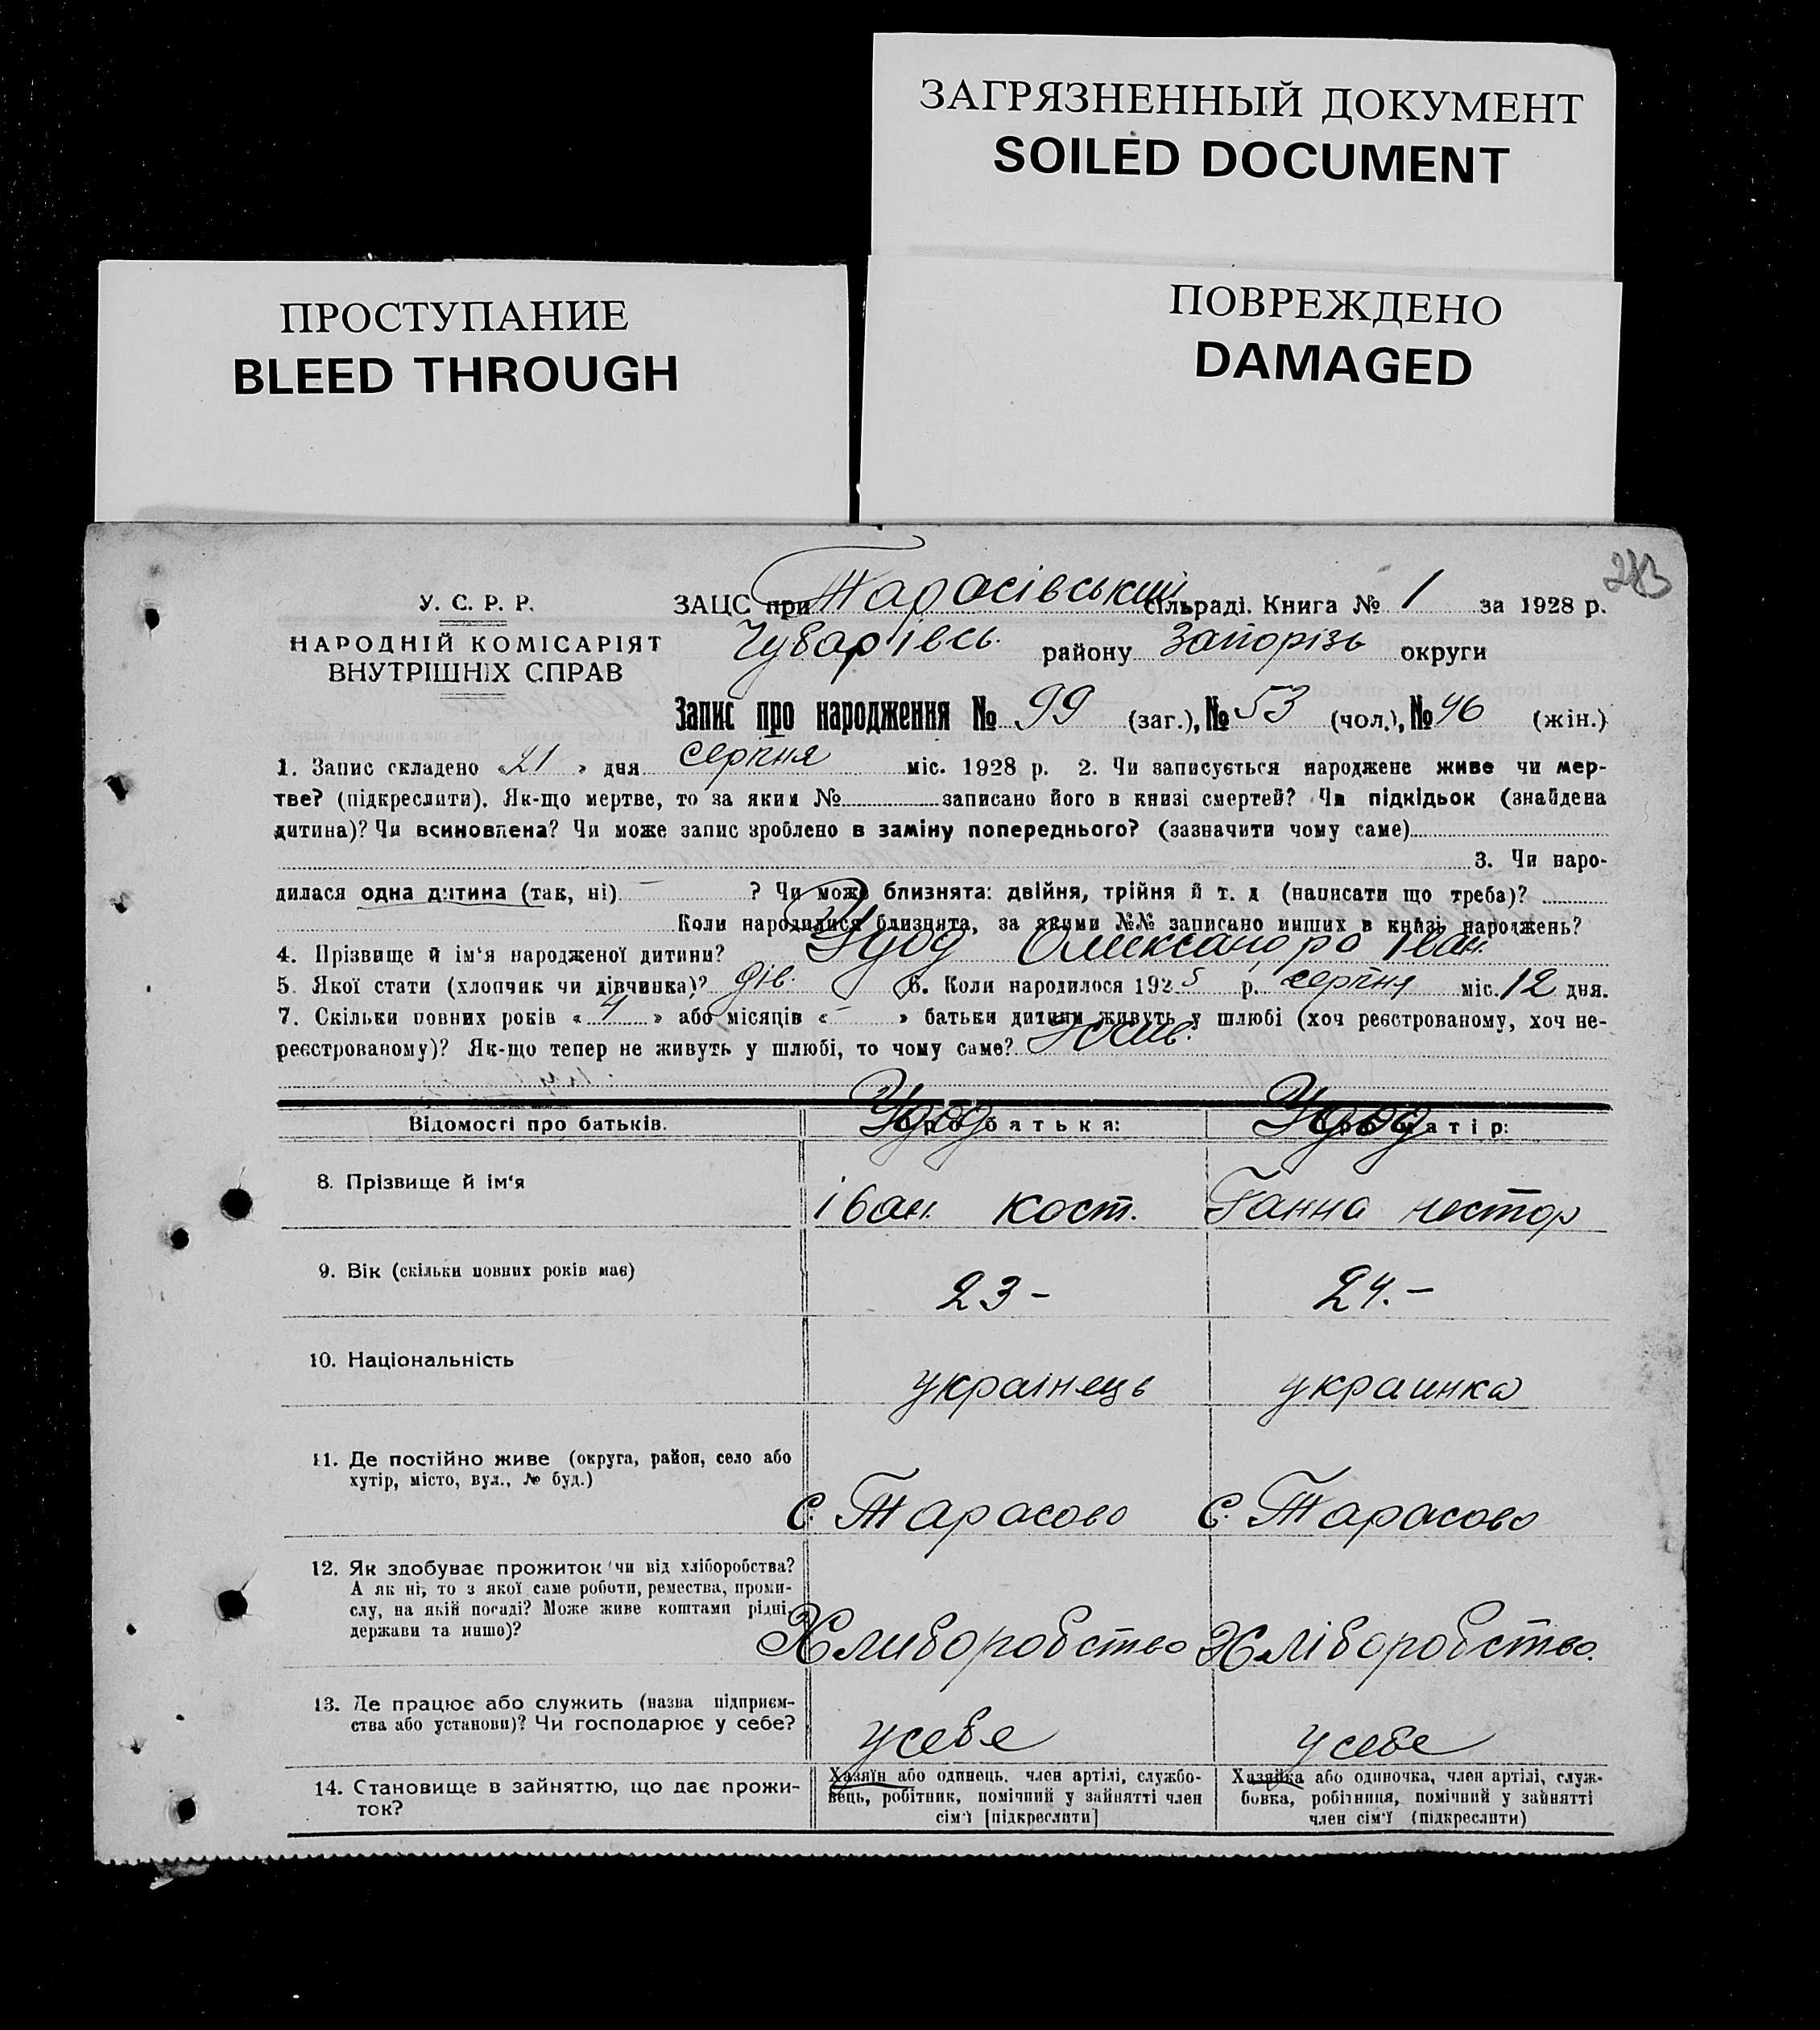 ЗАГРЯЗНЕННЫЙ ДОКУМЕНТ
SOILED DOCUMENT
ПРОСТУПАНИЕ
BLEED THROUGH
ПОВРЕЖДЕНО
DAMAGED
283
У. С. Р. Р.
НАРОДНІЙ КОМІСАРІЯТ
ВНУТРІШНІХ СПРАВ
ЗАЦС при Тарасівський сільраді. Книга № 1 за 1928 р.
Чубарівсь. району Запорізь округи
Запис про народження № 99 (заг.), № 53 (чол.), № 46 (жін.)
1. Запис складено «21» дня серпня міс. 1928 р. 2. Чи записується народжене живе чи мер-
тве? (підкреслити). Як-що мертве, то за яким № записано його в книзі смертей? Чи підкідьок (знайдена
дитина)? Чи всиновлена? Чи може запис зроблено в заміну попереднього? (зазначити чому саме)
3. Чи наро-
дилася одна дитина (так, ні) — ? Чи може близнята: двійня, трійня й т. д (написати що треба)?
Коли народилися близнята, за якими №№ записано инших в книзі народжень?
4. Прізвище й ім‘я народженої дитини? Удод Олександра Іван.
5. Якої стати (хлопчик чи дівчинка)? дів. 6. Коли народилося 1925 р. серпня міс. 12 дня.
7. Скільки повних років « 4 » або місяців « – » батьки дитини живуть у шлюбі (хоч реєстрованому, хоч не-
реєстрованому)? Як-що тепер не живуть у шлюбі, то чому саме? жив.
Відомості про батьків. Про батька: Про матір:
Удод Удод
8. Прізвище й ім‘я іван. кост. Ганна нестор
9. Вік (скільки повних років має) 23 – 24. –
10. Національність україінець украинка
11. Де постійно живе (округа, район, село або
хутір, місто, вул., № буд.)
С. Тарасово С. Тарасово
12. Як здобуває прожиток (чи від хліборобства?
А як ні, то з якої саме роботи, ремества, проми-
слу, на якій посаді? Може живе коштами рідні,
держави та инше)?
Хлиборобство Хліборобство.
13. Де працює або служить (назва підприєм-
ства або установи)? Чи господарює у себе?
усебе усебе
14. Становище в зайняттю, що дає прожи-
ток?
Хазяїн або одинець, член артілі, службо-
вець, робітник, помічний у зайнятті член
сім‘ї [підкреслити]
Хазяйка або одиночка, член артілі, служ-
бовка, робітниця, помічний у зайнятті
член сім‘ї (підкреслити)